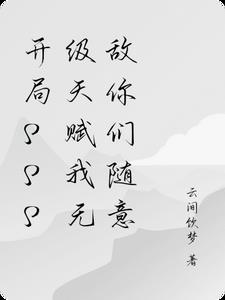 开局SSS
级天赋我无
敌你们随意
云间饮梦 著